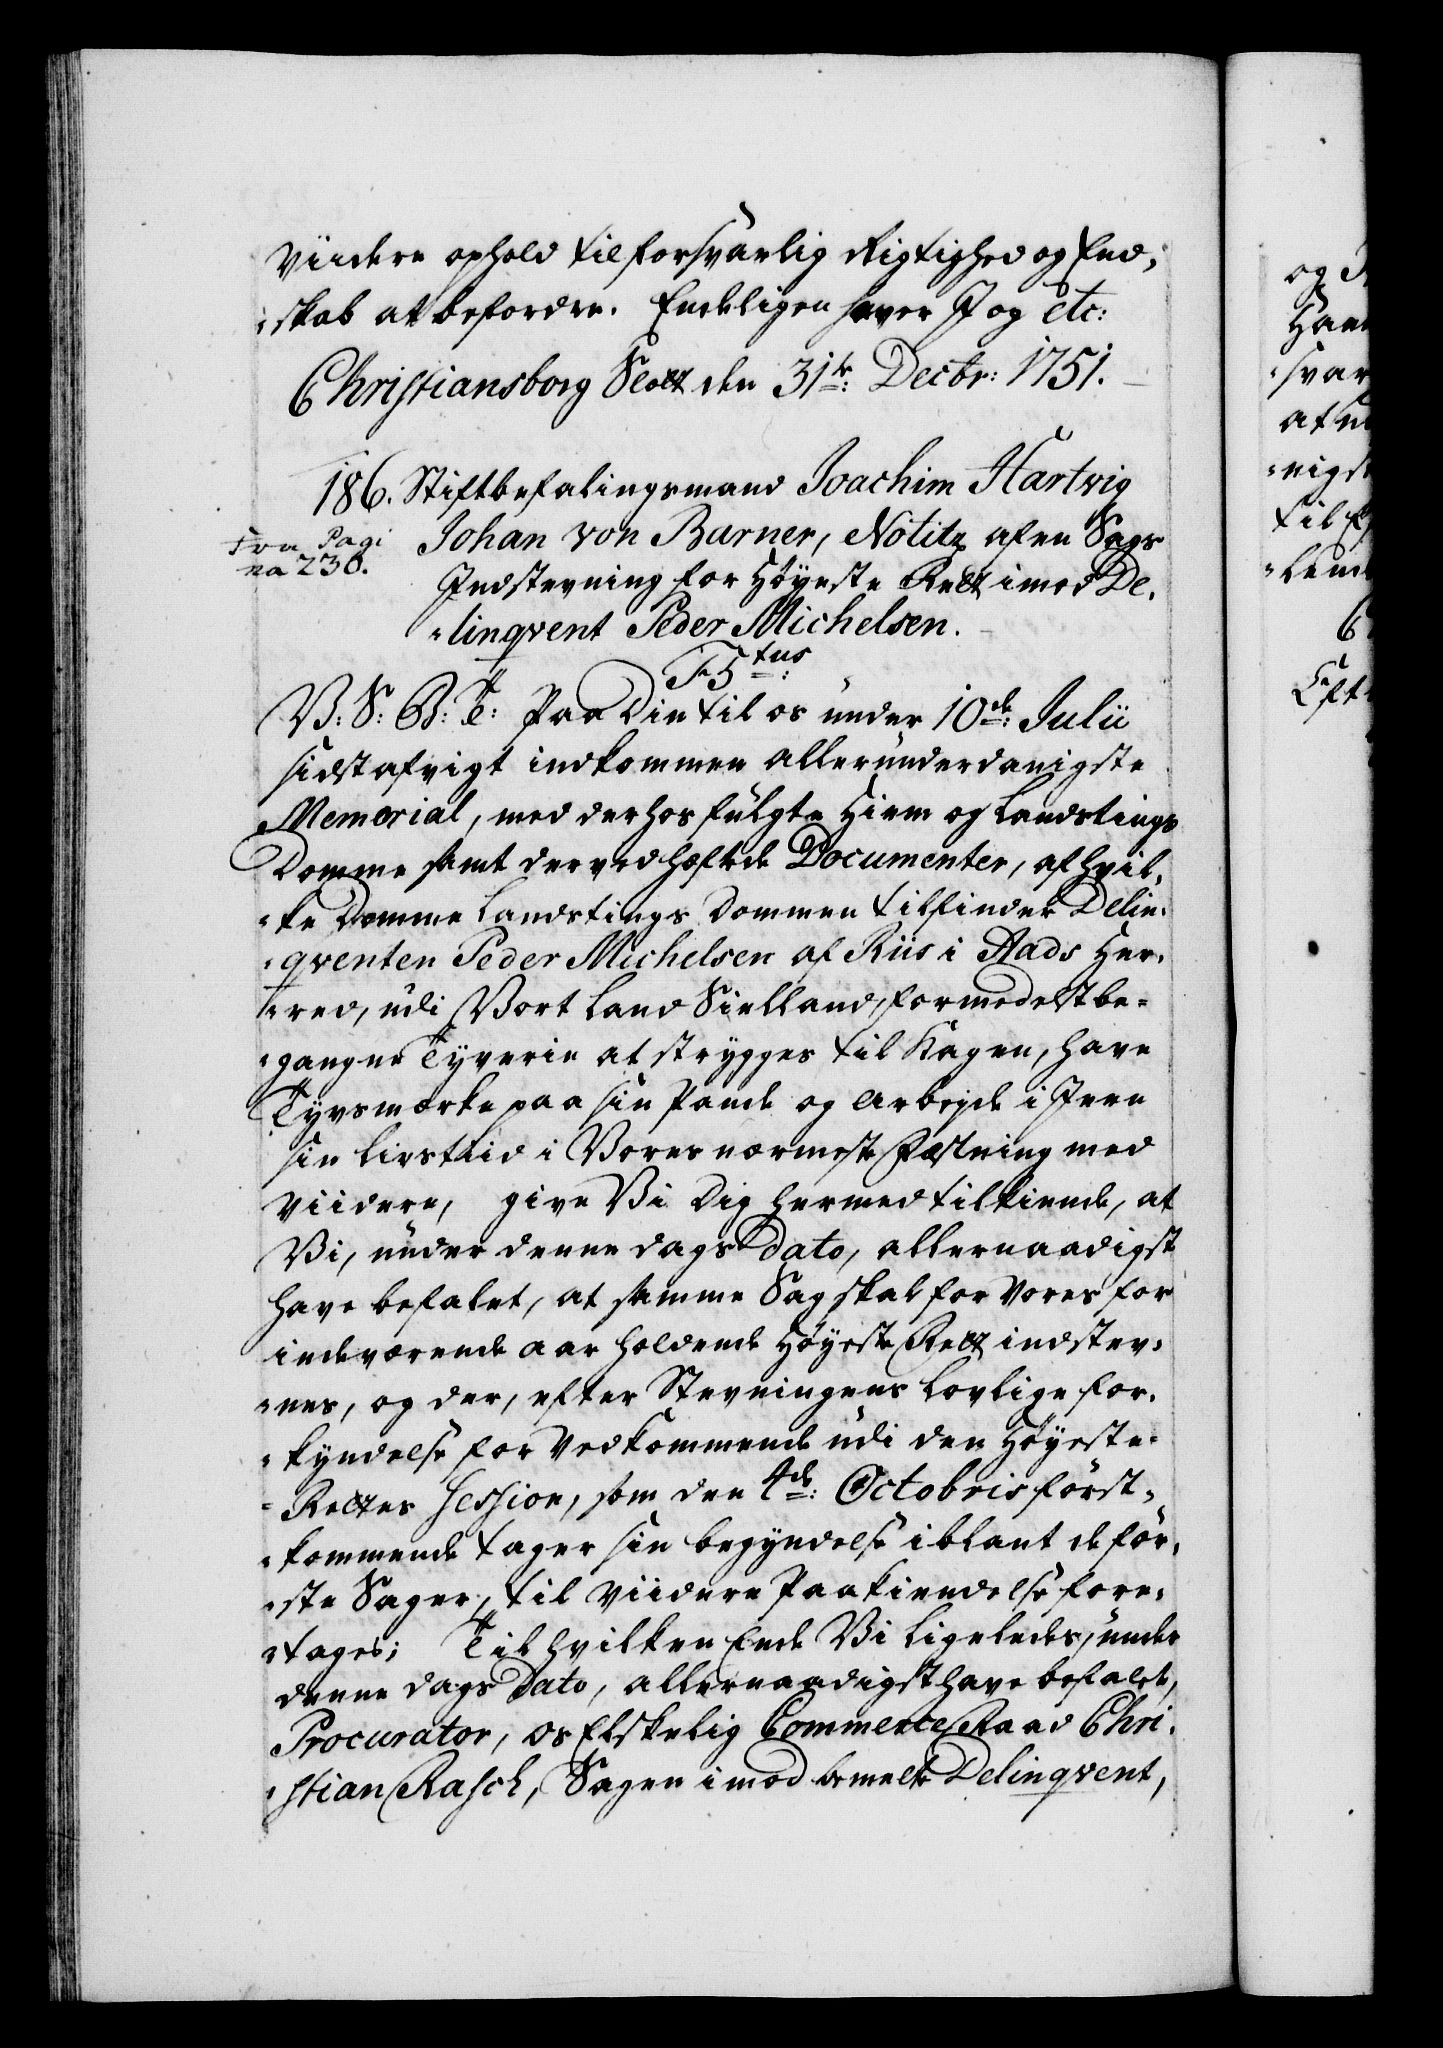 Viidere ophold til forsvarlig Rigtighed og End-
-skab at befordre. Endeligen haver I og etc:
Christiansborg Slott den 31te: Decbr: 1751.
186. Stiftbefalingsmand Joachim Hartvig
Fra Pagi
na 230.
Johan von Barner, Notitz af en Sags
Indstevning for Höyeste Rett imod De-
-linqvent Peder Michelsen.
F 5tus:
V: S: B: T: Paa Din til os under 10de: Julii
sidst afvigt indkommen allerunderdanigste
Memorial, med derhos fulgte Hiem og Landstings
Domme samt derved hæftede Documenter, af hvil-
-ke Domme Landstings Dommen tilfinder Delin-
-qventen Peder Michelsen af Riis i Aads Her-
-red, udi Vort Land Sielland, formedelst be-
-gangne Tyverie at strygges til Kagen, have
Tyvsmærke paa sin Pande og Arbejde i Jern
sin Livstiid i Vores nærmeste Fæstning med
Viidere, give Vi Dig hermed tilkiende, at
Vi, under denne dags Dato, allernaadigst
have befalet, at samme Sag skal for Vores for
indeværende aar holdende Höyeste Rett indstev-
-nes, og der, efter Stevningens Lovlige for-
-kyndelse for Vedkommende udi den Höyeste-
-Rettes Session, som den 4de: Octobris först-
-kommende tager sin begyndelse iblant de för-
-ste Sager, til Viidere Paakiendelse fore-
-tages; Til hvilken Ende Vi ligeledes, under
denne dags Dato, allernaadigst have befalet,
Procurator, os Elskelig Commerce Raad Chri-
-stian Rasch, Sagen imod bemelte Delinqvent,